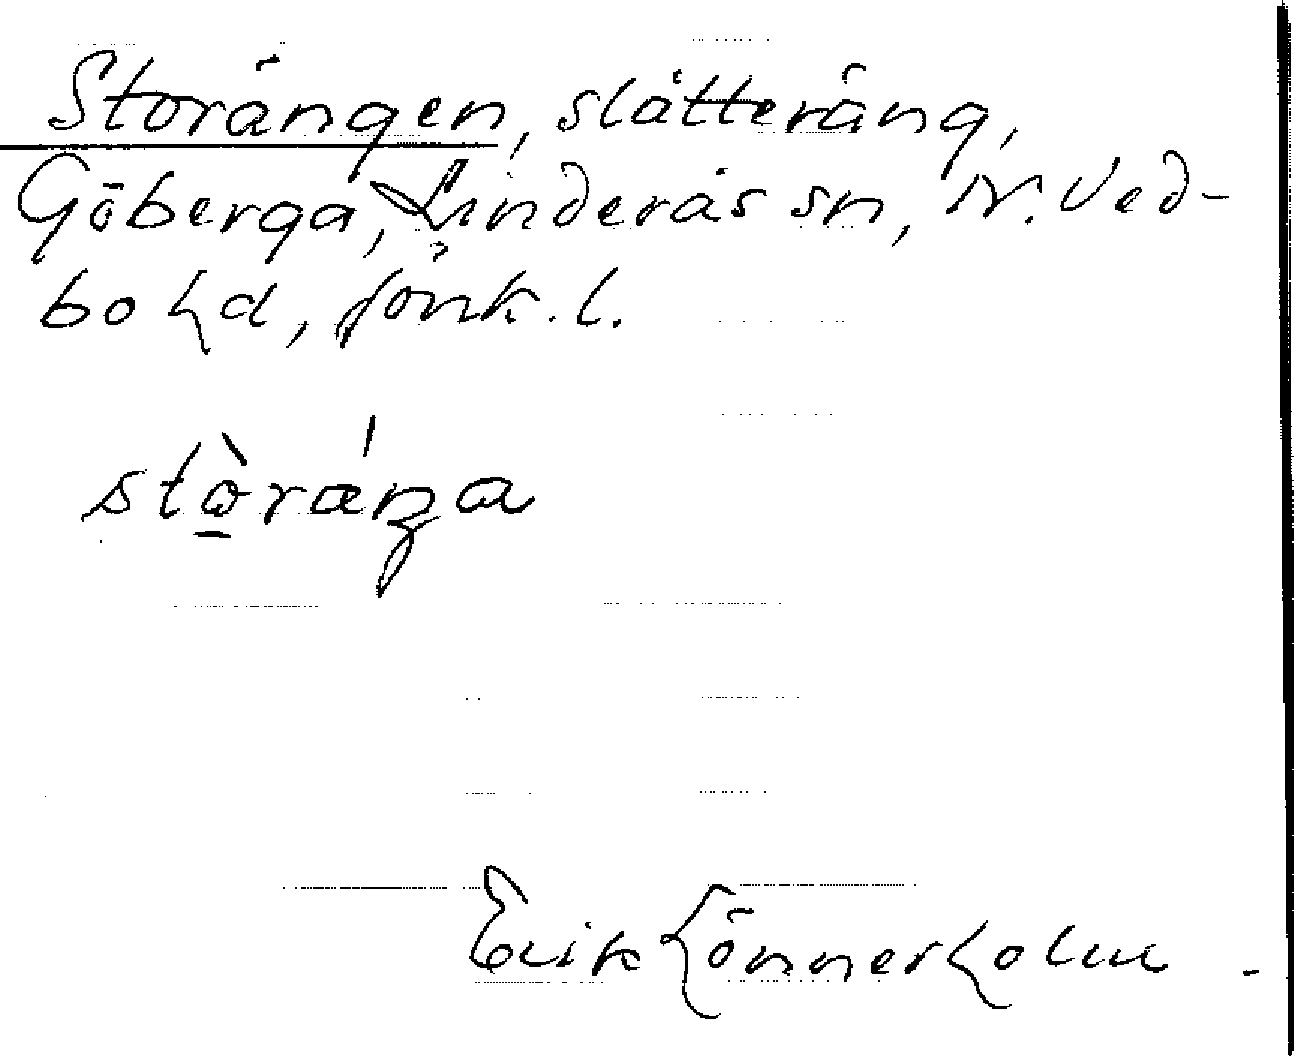 Storängen, slåtteräng,
Göberga, Linderås sn, N. Ved-
bo hd, Jönk. l.
stòräŋa
Erik Lönnerholm